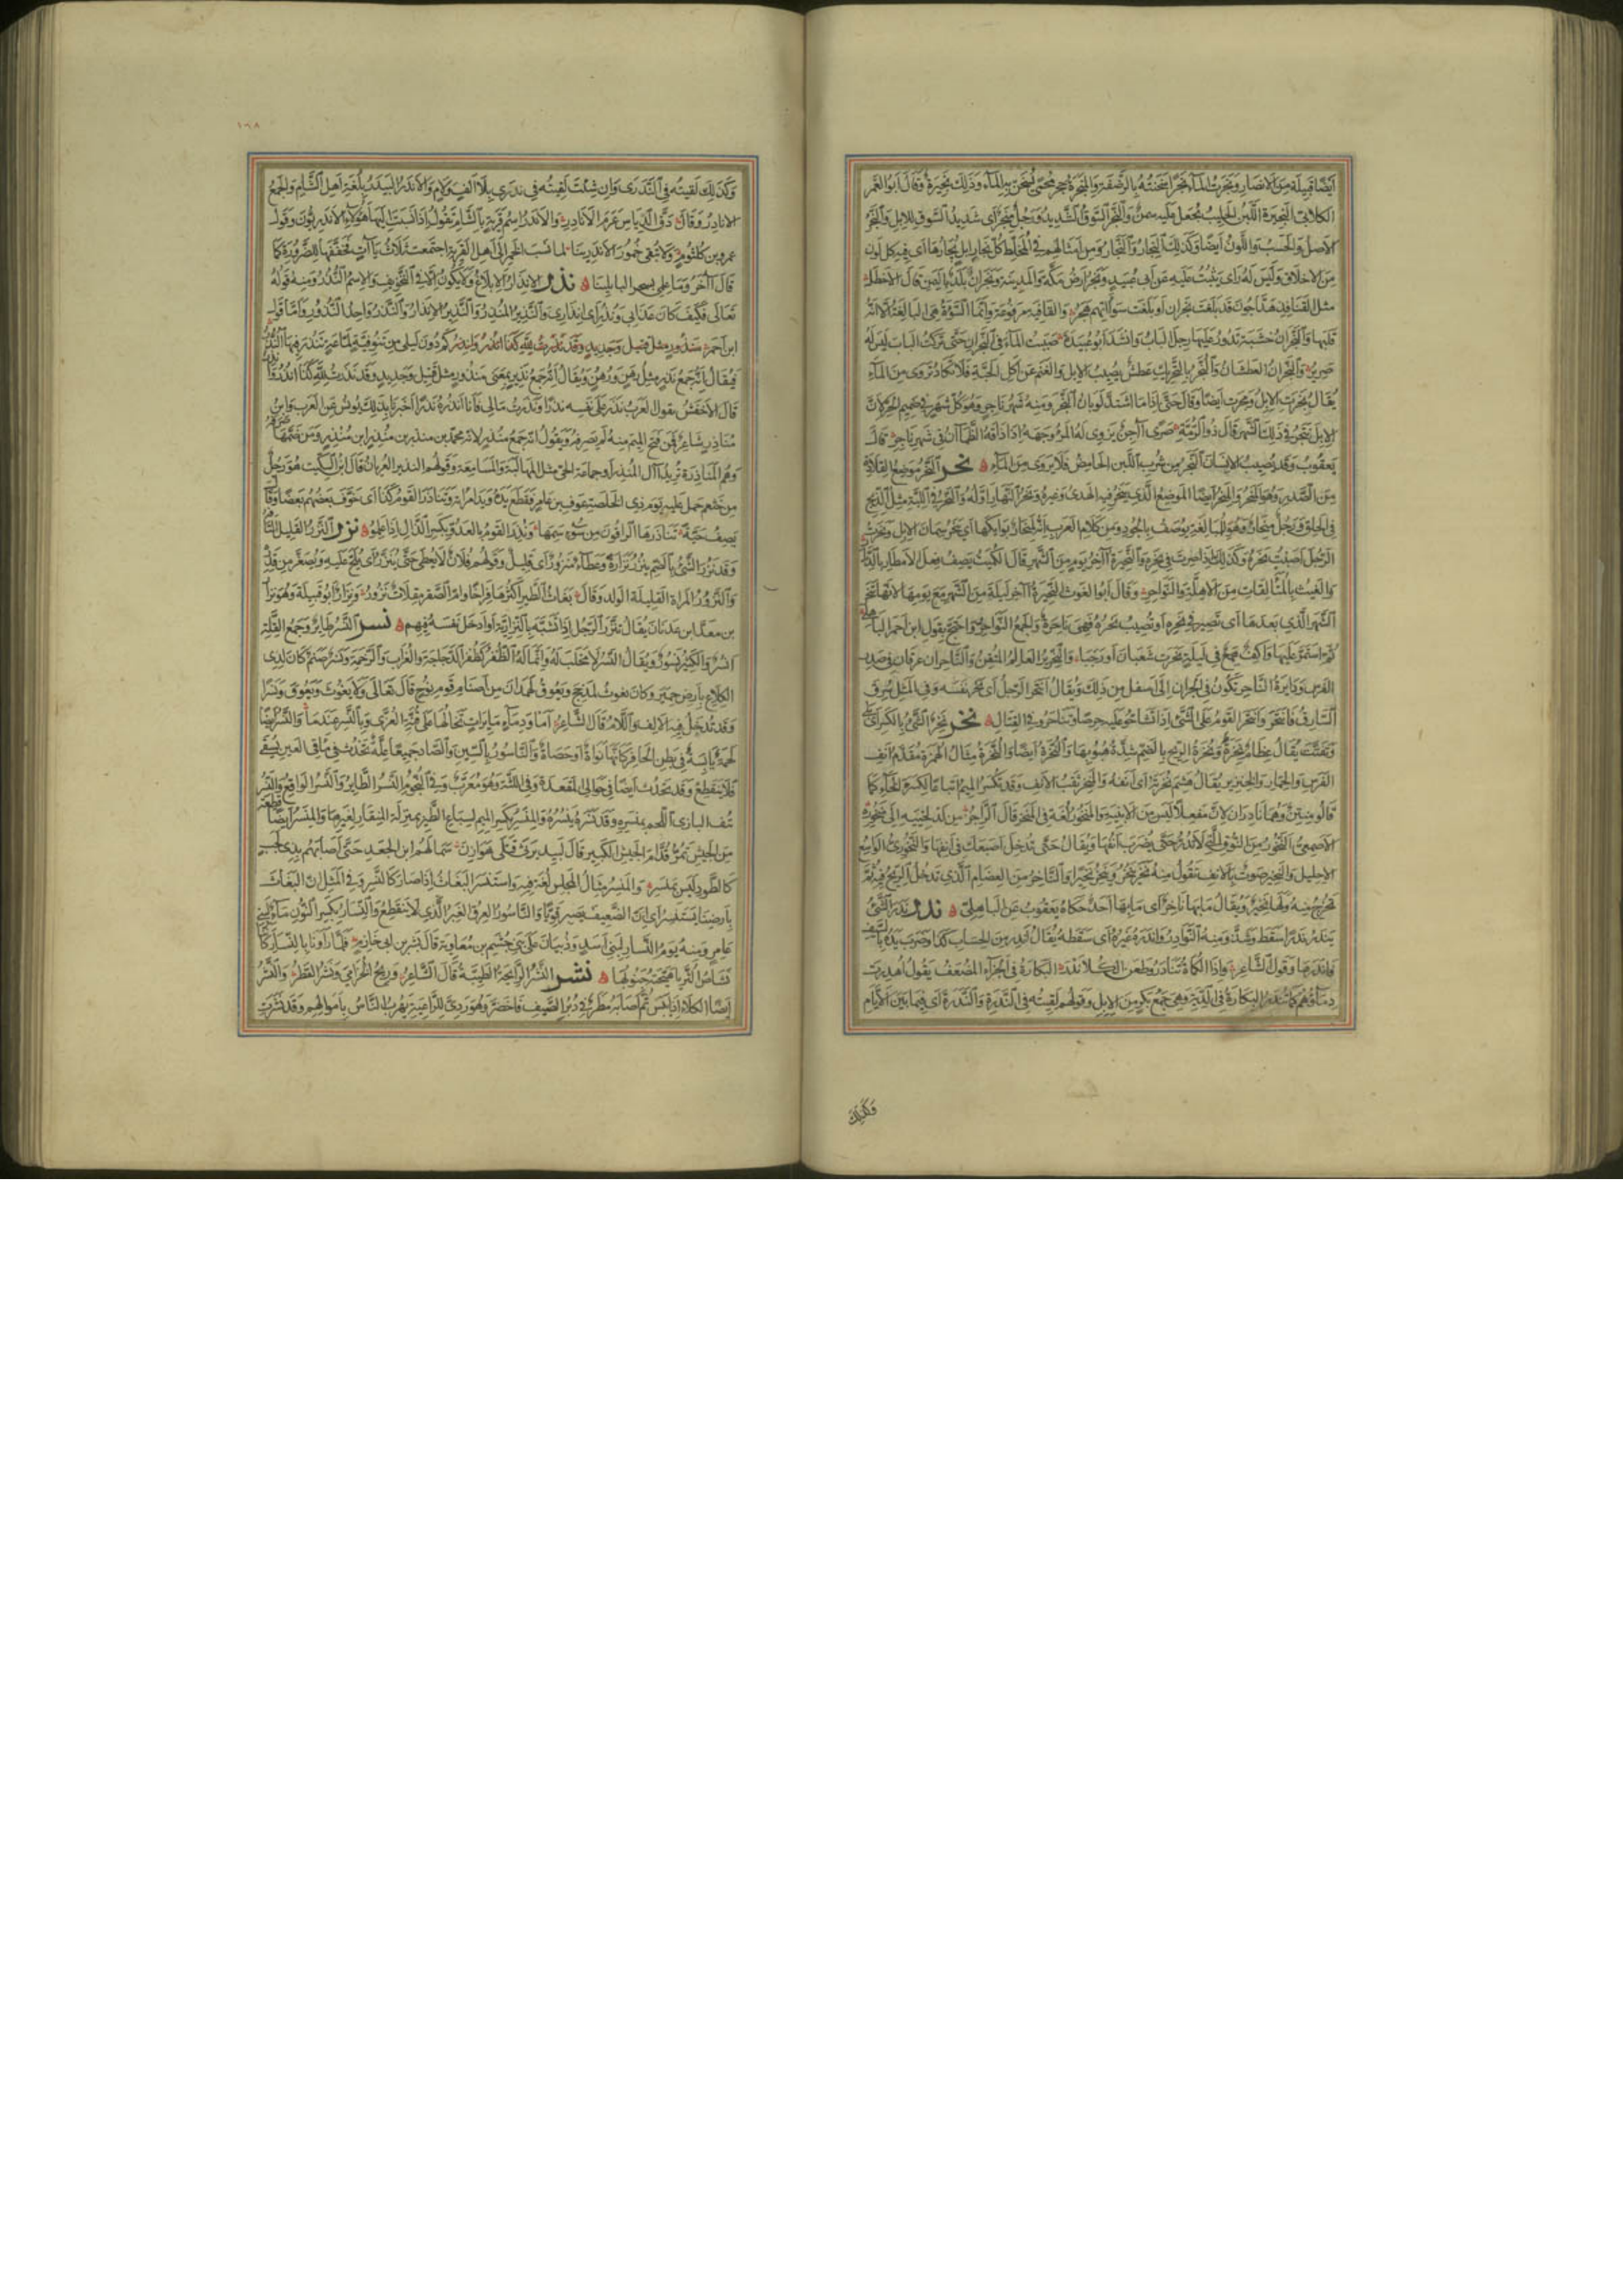 ايضا قبيلة من الانصار ونجرت الماء نجرا اسخنته بالرضفة والمنجرة حجر محمى يسخن به الماء وذلك نجيرة وقال ابو الغمر
الكلابى النجيرة اللبن الحليب يجعل عليه سمن والنجر السوق الشديد ورجل منجر اى شديد السوق للابل والنجر
الاصل والحسب واللون ايضا وكذلك النجار والنجار ومن امثالهم في المخلط كل نجار ابل نجارها اى فيه كل لون
من الاخلاق وليس له راى يثبت عليه عن ابى عبيد ونجر ارض مكة والمدينة ونجران بلد باليمن قال الاخطل
مثل القنافذ هداجون قد بلغت نجران او بلغت سوآتهم هجر والقافية مرفوعة وانما السوءة هى البالغة الا انه
قلبها والنجران خشبة تدور عليها رجل الباب وانشد ابو عبيدة صببت الماء في النجران حتى تركت الباب ليس له
صرير والنجران العطشان والنجر بالتحريك عطش يصيب الابل والغنم عن اكل الحبة فلا تكاد تروى من الماء
يقال نجرت الابل ومجرت ايضا وقال حتى اذا ما اشتد لوبان النجر ومنه شهر ناجر وهو كل شهر في صميم الحر لان
الابل تنجر في ذلك الشهر قال ذو الرمة صرى آجن يزوى له المرء وجهه اذا ذاقه الظمآن في شهر ناجر قال
يعقوب وقد يصيب الانسان النجر من شرب اللبن الحامض فلا يروى من الماء نحر النحر موضع القلادة
من الصدر وهو المنحر والمنحر ايضا الموضع الذي ينحر فيه الهدى وغيره ونحر النهار اوله والنحر في اللبة مثل الذبح
في الحلق ورجل منحار وهو للمبالغة يوصف بالجود ومن كلام العرب انه لمنحار بوائكها اى ينحر سمان الابل ونحرت
الرجل اصبت نحره وكذلك اذا صرت في نحره والنحيرة آخر يوم من الشهر قال الكميت يصف فعل الامطار بالديار
والغيث بالمتألقات من الاهلة والنواحر وقال ابو الغوث النحيرة آخر ليلة من الشهر مع يومها لانها تنحر
الشهر الذي بعدها اى تصير في نحره او تصيب نحره فهى ناحرة والجمع النواحر واحتج بقول ابن احمر الباهلي
ثم استمر عليها واكف همع في ليلة نحرت شعبان او رجبا والنحرير العالم المتقن والناحران عرقان في صدر
الفرس ودايرة الناحر تكون في الجران الى اسفل من ذلك ويقال انتحر الرجل اى نحر نفسه وفي المثل سرق
السارق فانتحر وانتحر القوم على الشيء اذا تشاحوا عليه حرصا وتناحروا في القتال نخر نخر الشيء بالكسر اى بلى
وتفتت يقال عظام نخرة ونخرة الريح بالضم شدة هبوبها والنخرة ايضا والنخرة مثال الهمزة مقدم انف
الفرس والحمار والخنزير يقال هشم نخرته اى انفه والمنخر ثقب الانف وقد تكسر الميم اتباعا لكسرة الخاء كما
قالوا منتن وهما نادران لان مفعلا ليس من الابنية والمنخور لغة في المنخر قال الراجز من لد لحييه الى منخوره
الاصمعي النخور من النوق التي لا تدر حتى يضرب انفها ويقال حتى تدخل اصبعك في انفها والنخوري الواسع
الاحليل والنخير صوت بالانف تقول منه نخر ينخر وينخر نخيرا والناخر من العظام الذي تدخل الريح فيه ثم
تخرج منه ولها نخير ويقال ما بها ناخر اى ما بها احد حكاه يعقوب عن الباهلى ندر ندر الشيء
يندر ندرا سقط وشذ ومنه النوادر واندره غيره اى سقطه يقال اندر من الحساب كذا وضرب يده بالسيف
فاندرها وقول الشاعر واذا الكماة تنادروا طعن الكلا ندر البكارة في الجزاء المضعف يقول اهدرت
دماؤهم كما تندر البكارة في الدية وهى جمع بكر من الابل وقولهم لقيته في الندرة والندرة اى فيما بين الايام
وكذلك
١٦٨
وكذلك لقيته في الندرى وان شئت لقيته في ندرى بلا الف ولام والاندر البيدر بلغة اهل الشام والجمع
الانادر وقال دق الدياس عرم الانادر والاندر اسم قرية بالشام تقول اذا نسبت اليها هؤلاء الاندريون وقول
عمرو بن كلثوم ولا تبقى خمور الاندرينا لما نسب الخمر الى اهل القرية اجتمعت ثلاث ياآت فخففها للضرورة كما
قال آخر وما علمى بسحر البابلينا نذر الانذار الابلاغ ولا يكون الا في التخويف والاسم النذر ومنه قوله
تعالى فكيف كان عذابى ونذر اى انذارى والنذير المنذر والنذير الانذار والنذر واحد النذور واما قول
ابن احمر
فيقال انه جمع نذير مثل رهن ورهن ويقال انه جمع نذير بمعنى منذور مثل قتيل وجديد وقد نذرت لله كذا
قال الاخفش تقول العرب نذر على نفسه نذرا ونذرت مالى فانا انذره نذرا اخبرنا بذلك يونس عن العرب وابن
مناذر شاعر فمن فتح الميم منه لم يصرفه ويقول انه جمع منذر لانه محمد بن منذر بن منذر بن منذر ومن ضمها صرفه
وهم المناذرة تريد آل المنذر او جماعة الحى مثل المهالبة والمسامعة وقولهم النذير العريان قال ابن السكيت هو رجل
من خثعم حمل عليه يوم ذى الخلصة عوف بن عامر فقطع يده ويد امرأته وتناذر القوم كذا اى خوف بعضهم بعضا وقال
يصف حية تناذرها الراقون من سوء سمها ونذر القوم بالعدو بكسر الذال اذا علموا نزر النزر القليل التافه
وقد نزر الشيء بالضم ينزر نزارة وعطاء منزور اى قليل وقولهم فلان لا يعطى حتى ينزر اى يلح عليه ويصغر من قدره
والنزور المرأة القليلة الولد وقال بغاث الطير اكثرها فراخا وام الصقر مقلات نزور ونزار ابو قبيلة وهو نزار
بن معد ابن عدنان يقال تنزر الرجل اذا تشبه بالنزارية او ادخل نفسه فيهم نسر النسر طاير وجمع القلة
انسر والكثير نسور ويقال النسر لا مخلب له وانما له الظفر كظفر الدجاجة والغراب والرخمة ونسر صنم كان لذى
الكلاع بارض حمير وكان يغوث لمذحج ويعوق لهمدان من اصنام قوم نوح قال تعالى ولا يغوث ويعوق ونسرا
وقد تدخل فيه الالف واللام قال الشاعر اما ودماء مائرات تخالها على قنة العزى وبالنسر عندما والنسر ايضا
لحمة يابسة في بطن الحافر كانها نواة او حصاة والناسور بالسين والصاد جميعا علة تحدث في مآقى العين يسقى
فلا ينقطع وقد يحدث ايضا في حوالى المقعدة وفى اللثة وهو معرب وفي النجوم النسر الطاير والنسر الواقع والنسر
نتف البازى اللحم بمنسره وقد نسره ينسره والمنسر بكسر الميم لسباع الطير بمنزلة المنقار لغيرها والمنسر ايضا قطعة
من الجيش تمر قدام الجيش الكبير قال لبيد يرثى قتلى هوازن سما لهم ابن الجعد حتى اصابهم بذى لجب
كالطود ليس بمنسر والمنسر مثال المجلس لغة فيه واستنسر البغاث اذا صار كالنسر وفي المثل ان البغاث
بارضنا يستنسر اى ان الضعيف يصير قويا والناسور العرق الغبر الذي لا ينقطع والنسار بكسر النون ماء لبنى
عامر ومنه يوم النسار لبنى اسد وذبيان على بنى جشم بن معاوية قال بشر بن ابى خازم فلما راونا بالنسار كاننا
نشاص الثريا هيجته جنوبها نشر النشر الرايحة الطيبة قال الشاعر وريح الخزامى ونشر القطر والنشر
ايضا الكلاء اذا يبس ثم اصابه مطر في دبر الصيف فاخضر وهو ردى للراعية يهرب الناس باموالهم وقد نشرت